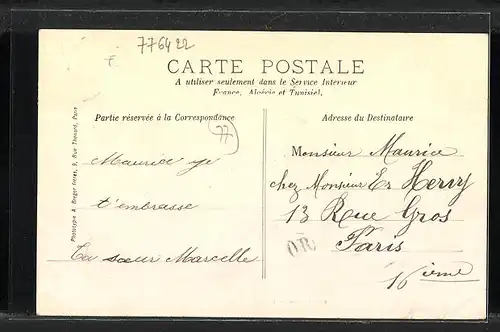 776422
F
CARTE POSTALE
A utiliser seulement dans le Service Intérieur
France, Algérie et Tunisie).
Partie réservée à la Correspondance
Adresse du Destinataire
77
Phototypie A. Breger Frères, 9, Rue Thénard, Paris
Maurice je
t'embrasse
Ta sœur Marcelle
Monsieur Maurice
chez Monsieur Er Hervy
13 Rue Gros
Paris
16 ième
OR